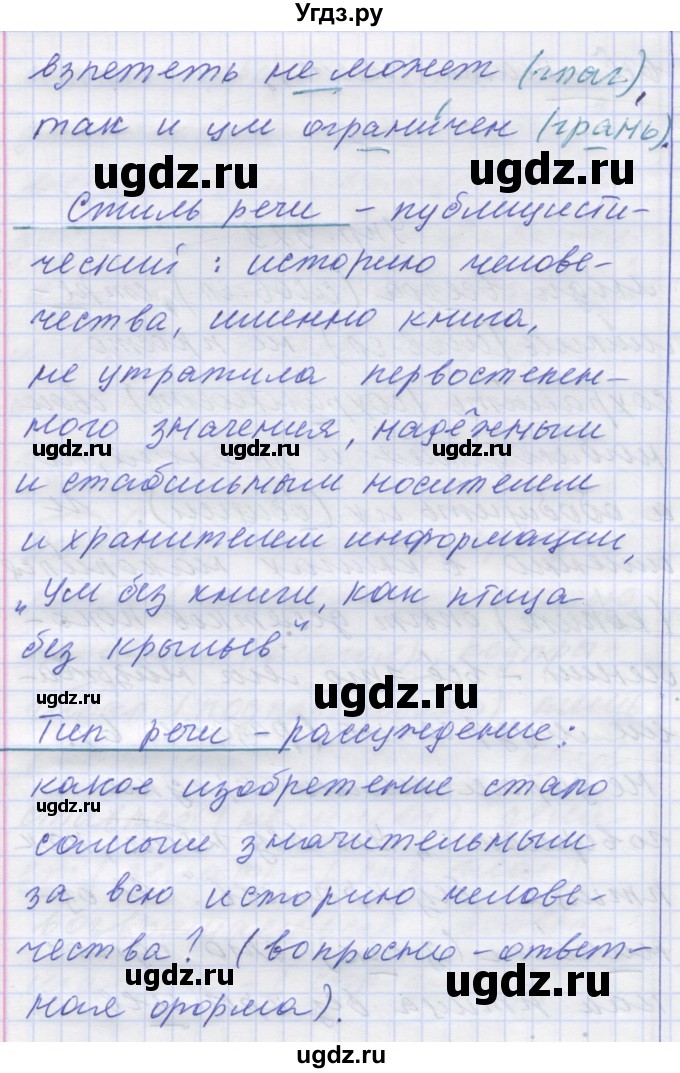 Угдз.ру
взлететь не может (глаг),
так и ум ограничен (грань).
ugdz.ru ugdz.ru
Стиль речи – публицисти-
ческий: историю челове-
чества, именно книга,
не утратила первостепен-
ного значения, надёжным
ugdz.ru ugdz.ru ugdz.ru
и стабильным носителем
и хранителем информации,
„Ум без книги, как птица
без крыльев"
ugdz.ru ugdz.ru
Тип речи – рассуждение:
какое изобретение стало
ugdz.ru
самым значительным
за всю историю челове-
чества? (вопросно-ответ-
ugdz.ru ugdz.ru
ная форма).
ugdz.ru
ugdz.ru